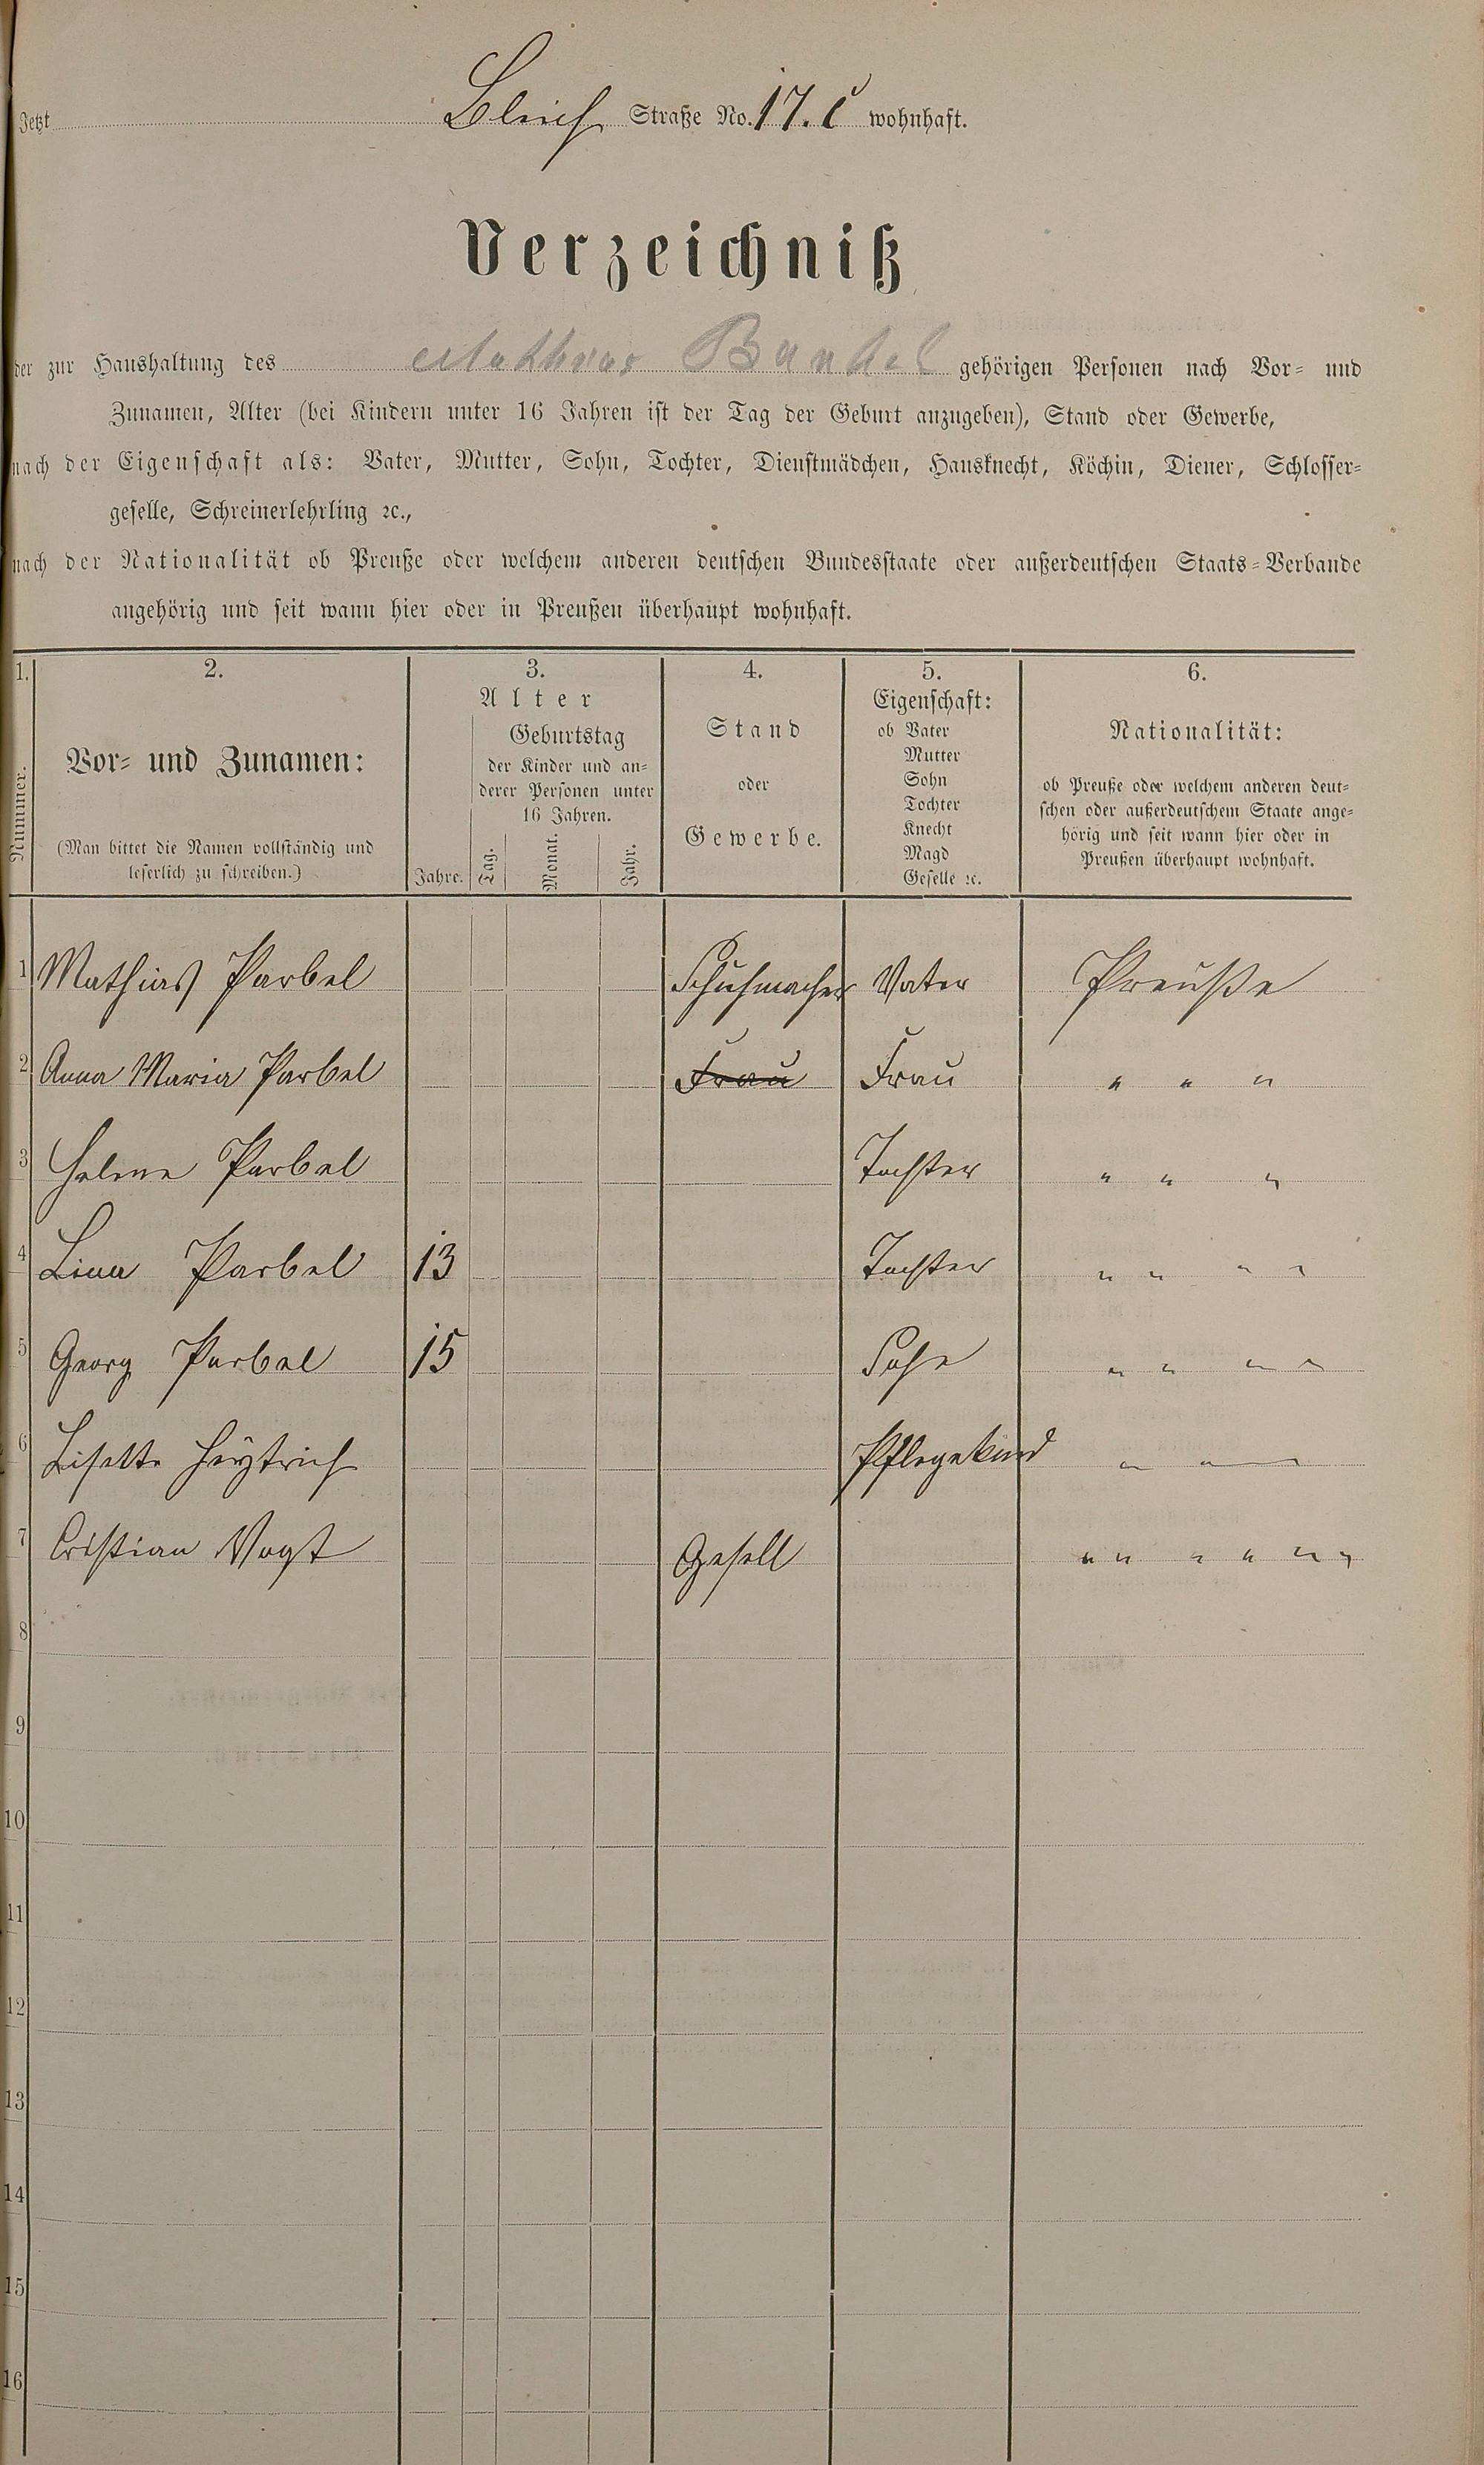 Jetzt Bleich Straße No. 17. c wohnhaft.
Verzeichniß
der zur Haushaltung des Mathias gehörigen Personen nach Vor- und
Zunamen, Alter (bei Kindern unter 16 Jahren ist der Tag der Geburt anzugeben), Stand oder Gewerbe,
nach der Eigenschaft als: Vater, Mutter, Sohn, Tochter, Dienstmädchen, Hausknecht, Köchin, Diener, Schlosser-
geselle, Schreinerlehrling ꝛc.,
nach der Nationalität ob Preuße oder welchem anderen deutschen Bundesstaate oder außerdeutschen Staats-Verbande
angehörig und seit wann hier oder in Preußen überhaupt wohnhaft.
1. 2. 3. 4. 5. 6.
Nummer.
Vor- und Zunamen:
(Man bittet die Namen vollständig und
leserlich zu schreiben.)
Alter
Jahre.
Geburtstag
der Kinder und an-
derer Personen unter
16 Jahren.
Tag. Monat. Jahr.
Stand
oder
Gewerbe.
Eigenschaft:
ob Vater
Mutter
Sohn
Tochter
Knecht
Magd
Geselle ꝛc.
Nationalität:
ob Preuße oder welchem anderen deut-
schen oder außerdeutschem Staate ange-
hörig und seit wann hier oder in
Preußen überhaupt wohnhaft.
1 Mathias Parbel Schuhmacher Vater Preuße
2 Anna Maria Parbel Frau Frau " " "
3 Helene Parbel Tochter " " "
4 Lina Parbel 13 Tochter " " " "
5 Georg Parbel 15 Sohn " " " "
6 Lisette Pflegekind " "
7 Cristian Vogt Gesell " " " " " "
8
9
10
11
12
13
14
15
16